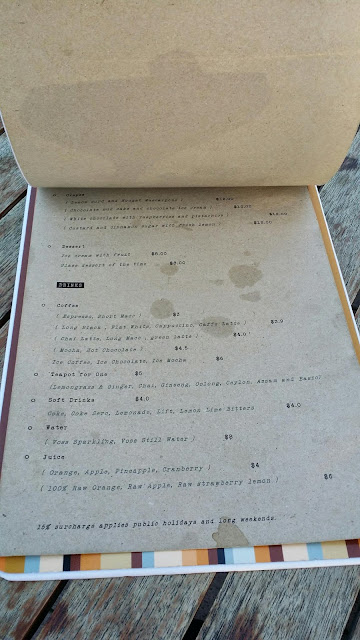 ( Chocolate and cake and chocolate ice cream ) $12.00
( White chocolate with raspberries and pistachios ) $14.00
( Custard and Cinnamon sugar with fresh lemon ) $12.00
o Dessert
Ice cream with fruit $8.00
Pizza dessert of the time $8.00
DRINKS
o Coffee
( Espresso, Short Macc ) $3
( Long Black , Flat White, Cappuccino, Caffe Latte ) $3.9
( Chai Latte, Long Macc , green latte ) $4.0
( Mocha, Hot Chocolate ) $4.5
Ice Coffee, Ice Chocolate, Ice Mocha $6
o Teapot for One $5
(Lemongrass & Ginger, Chai, Ginseng, Oolong, Ceylon, Assam and
o Soft Drinks $4.0
Coke, Coke Zero, Lemonade, Lift, Lemon Lime Bitters $4.0
o Water
( Voss Sparkling, Voss Still Water ) $8
o Juice
( Orange, Apple, Pineapple, Cranberry ) $4
( 100% Raw Orange, Raw Apple, Raw strapberry lemon ) $6
15% surcharge applies public holidays and long weekends.